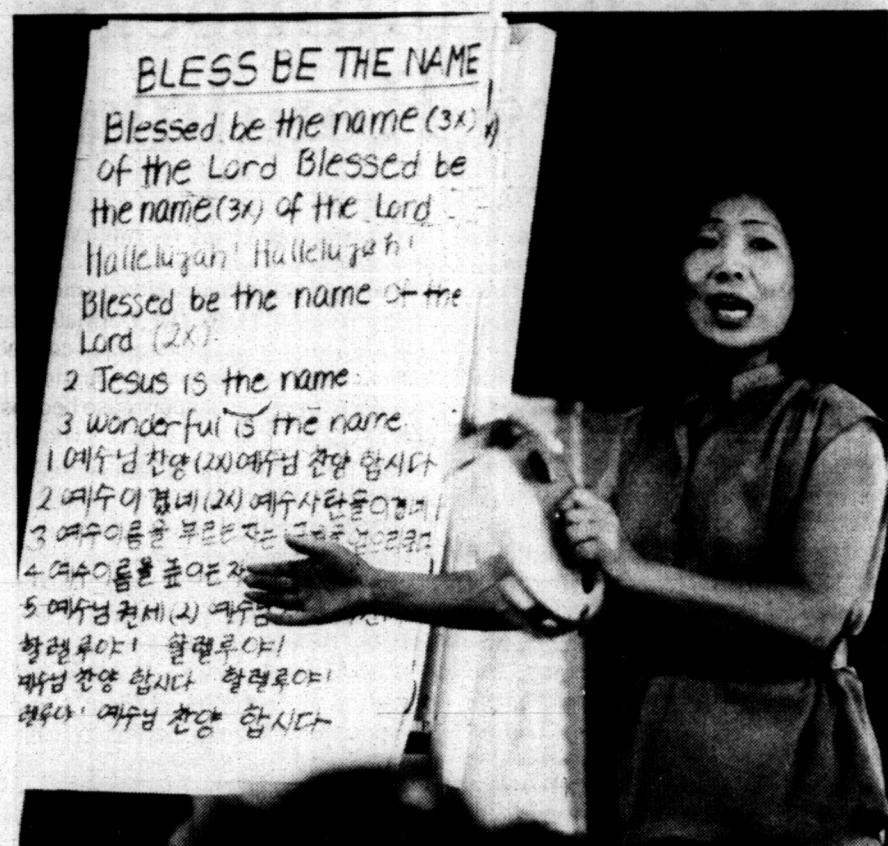 BLESS BE THE NAME
Blessed be the name (3x)
of the Lord Blessed be
the name (3x) of the Lord
Hallelujah! Hallelujah!
Blessed be the name of the
Lord (2x)
2 Jesus is the name
3 wonderful is the name
1 예수님 찬양 (2x) 예수님 찬양 합시다
2 예수 이겼네 (2x) 예수 사탄을 이겼네
3 예수 이름을 부르는 자는
4 예수 이름을 높이는 자
5 예수님 권세 (2) 예수님
할렐루야! 할렐루야!
예수님 찬양 합시다 할렐루야!
렐루야! 예수님 찬양 합시다